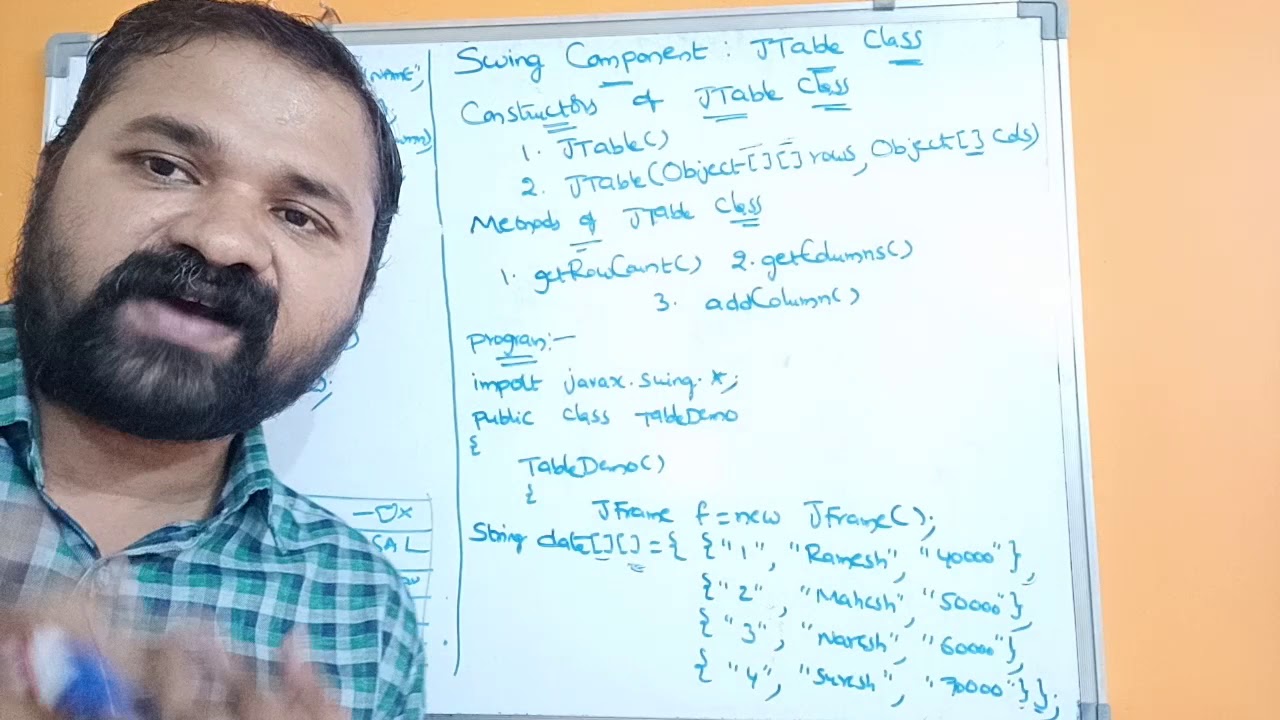 Swing Component : JTable Class
Constructors of JTable Class
1. JTable()
2. JTable(Object[][] rows, Object[] cols)
Methods of JTable Class
1. getRowCount() 2. getColumns()
3. addColumn()
program:-
import javax.swing.*;
public class TableDemo
{
TableDemo()
{
JFrame f=new JFrame();
String data[][]={ {"1", "Ramesh", "40000"},
{"2", "Mahesh", "50000"},
{"3", "Naresh", "60000"},
{"4", "Suresh", "70000"}};
NAME",
SAL